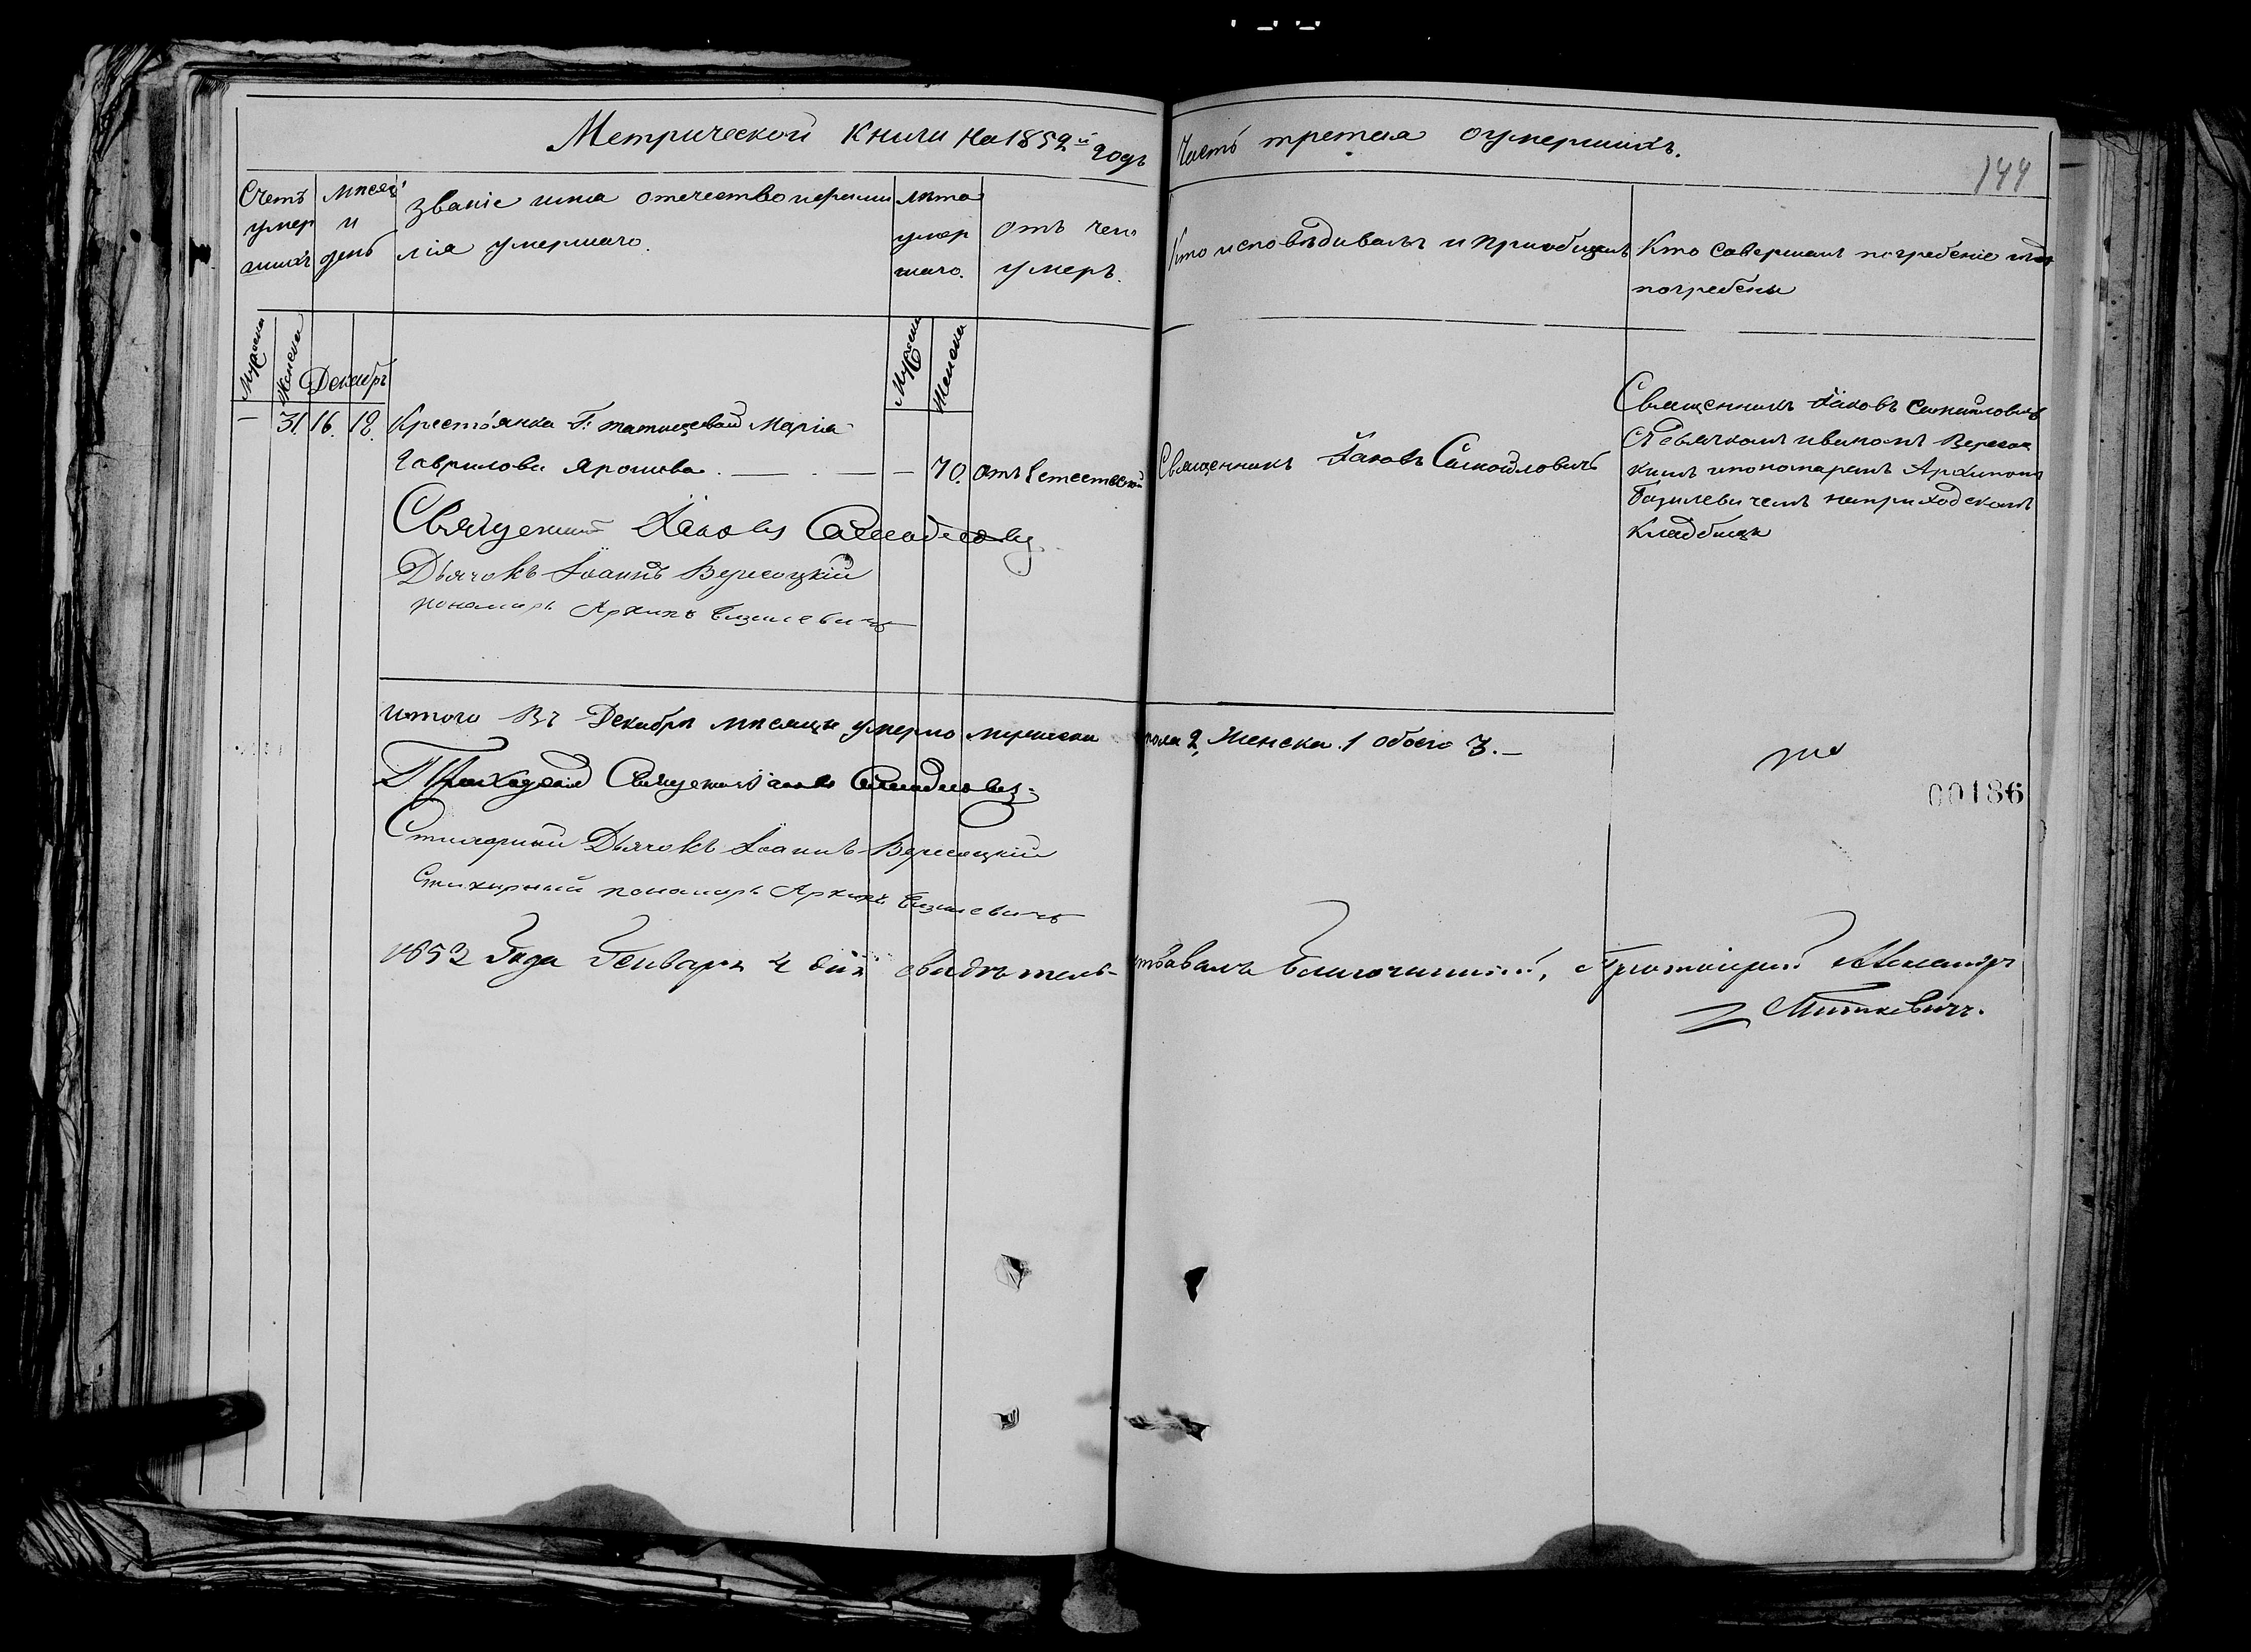 Метрической книги на 1852й годъ
Часть третая о умершихъ.
144
Счетъ умер шихъ
Месяцъ и день
званіе имя отечество и фами
лія умершаго.
лѣта умер шаго.
отъ чего умеръ.
Кто исповѣдивалъ и приобщилъ
Кто совершалъ погребеніе и гдѣ
погребены
Мужеска
Женска
Декабрь
Мужеска
Женска
— 31. 16. 18. Крестьянка Г. Татищевой Марія
Гаврилова Ярошова. — — — 70. отъ Естествен
Священникъ Іаковъ Самойловичъ
Священникъ Іаковъ Самойловичъ
Съ дьячкомъ Иваномъ Вересоц
кимъ и пономаремъ Архипомъ
Базилевичемъ на приходскомъ
кладбищѣ
Священникъ Іаковъ Самойловичъ
Дьячокъ Іоаннъ Вересоцкій
пономарь Архипъ Базилевичъ
Итого въ Декабрѣ месяцѣ умерло мужеска пола 2, Женска 1 обоего 3. —
00186
Приходскій Священникъ Іаковъ Самойловичъ
Стихарный Дьячокъ Іоаннъ Вересоцкій
Стихарный пономарь Архипъ Базилевичъ
1853 Года Генваря 4 дня свидѣтель-
ствовалъ Благочинный, Протоіерей Александръ
Миткевичъ.